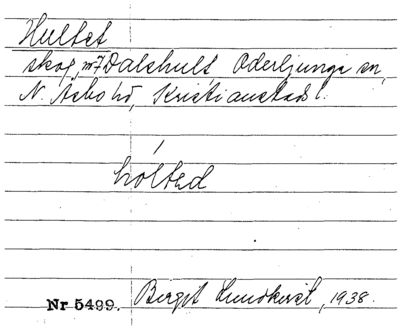 Hultet
skog, m7 Dalshult Oderljunga sn,
N. Åsbo hd, Kristianstads l.
hólted
Nr 5499. Birgit Lundkvist, 1938.